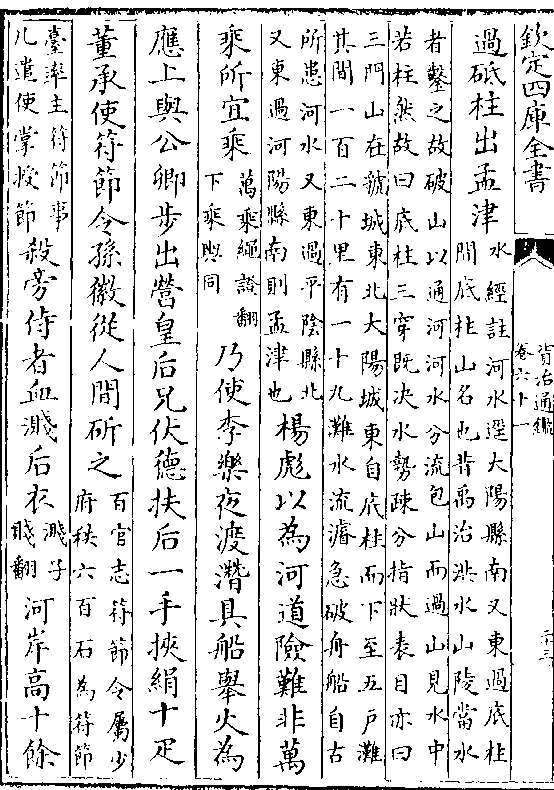 欽定四庫全書
資治通鑑
卷六十一
二十三
過砥柱出孟津
水經註河水逕大陽縣南又東過底柱
間底柱山名也昔禹治洪水山陵當水
者鑿之故破山以通河河水分流包山而過山見水中
若柱然故曰底柱三穿既決水勢疎分指狀表目亦曰
三門山在虢城東北大陽城東自底柱而下至五戶灘
其間一百二十里有一十九灘水流濬急破舟船自古
所患河水又東過平陰縣北
又東過河陽縣南則孟津也
楊彪以為河道險難非萬
乘所宜乘
萬乘繩證翻
下乘輿同
乃使李樂夜渡潛具船舉火為
應上與公卿步出營皇后兄伏德扶后一手挾絹十疋
董承使符節令孫徽從人間斫之
百官志符節令屬少
府秩六百石為符節
臺率主符節事
凡遣使掌授節
殺旁侍者血濺后衣
濺子
賤翻
河岸高十餘